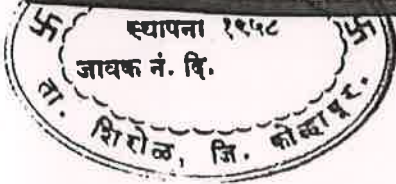 स्थापना १९५८
जावक नं. दि.
ता. शिरोळ, जि. कोल्हापूर.